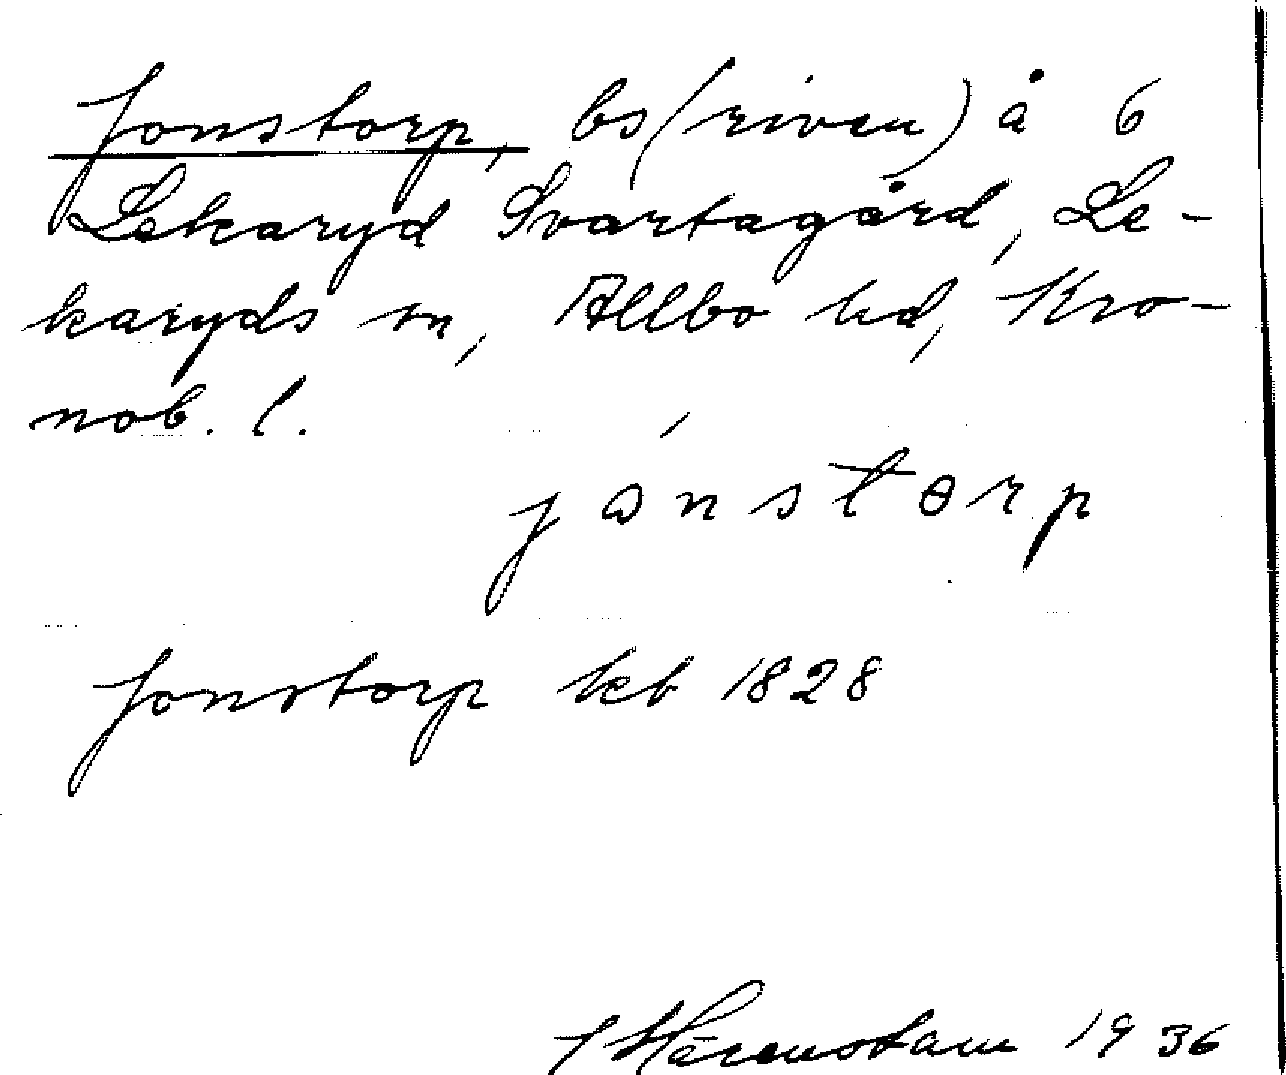 Jonstorp, bs(riven) å 6
Lekaryd Svartagård, Le-
karyds sn, Allbo hd, Kro-
nob. l.
jónstɵrp
Jonstorp kb 1828
1936